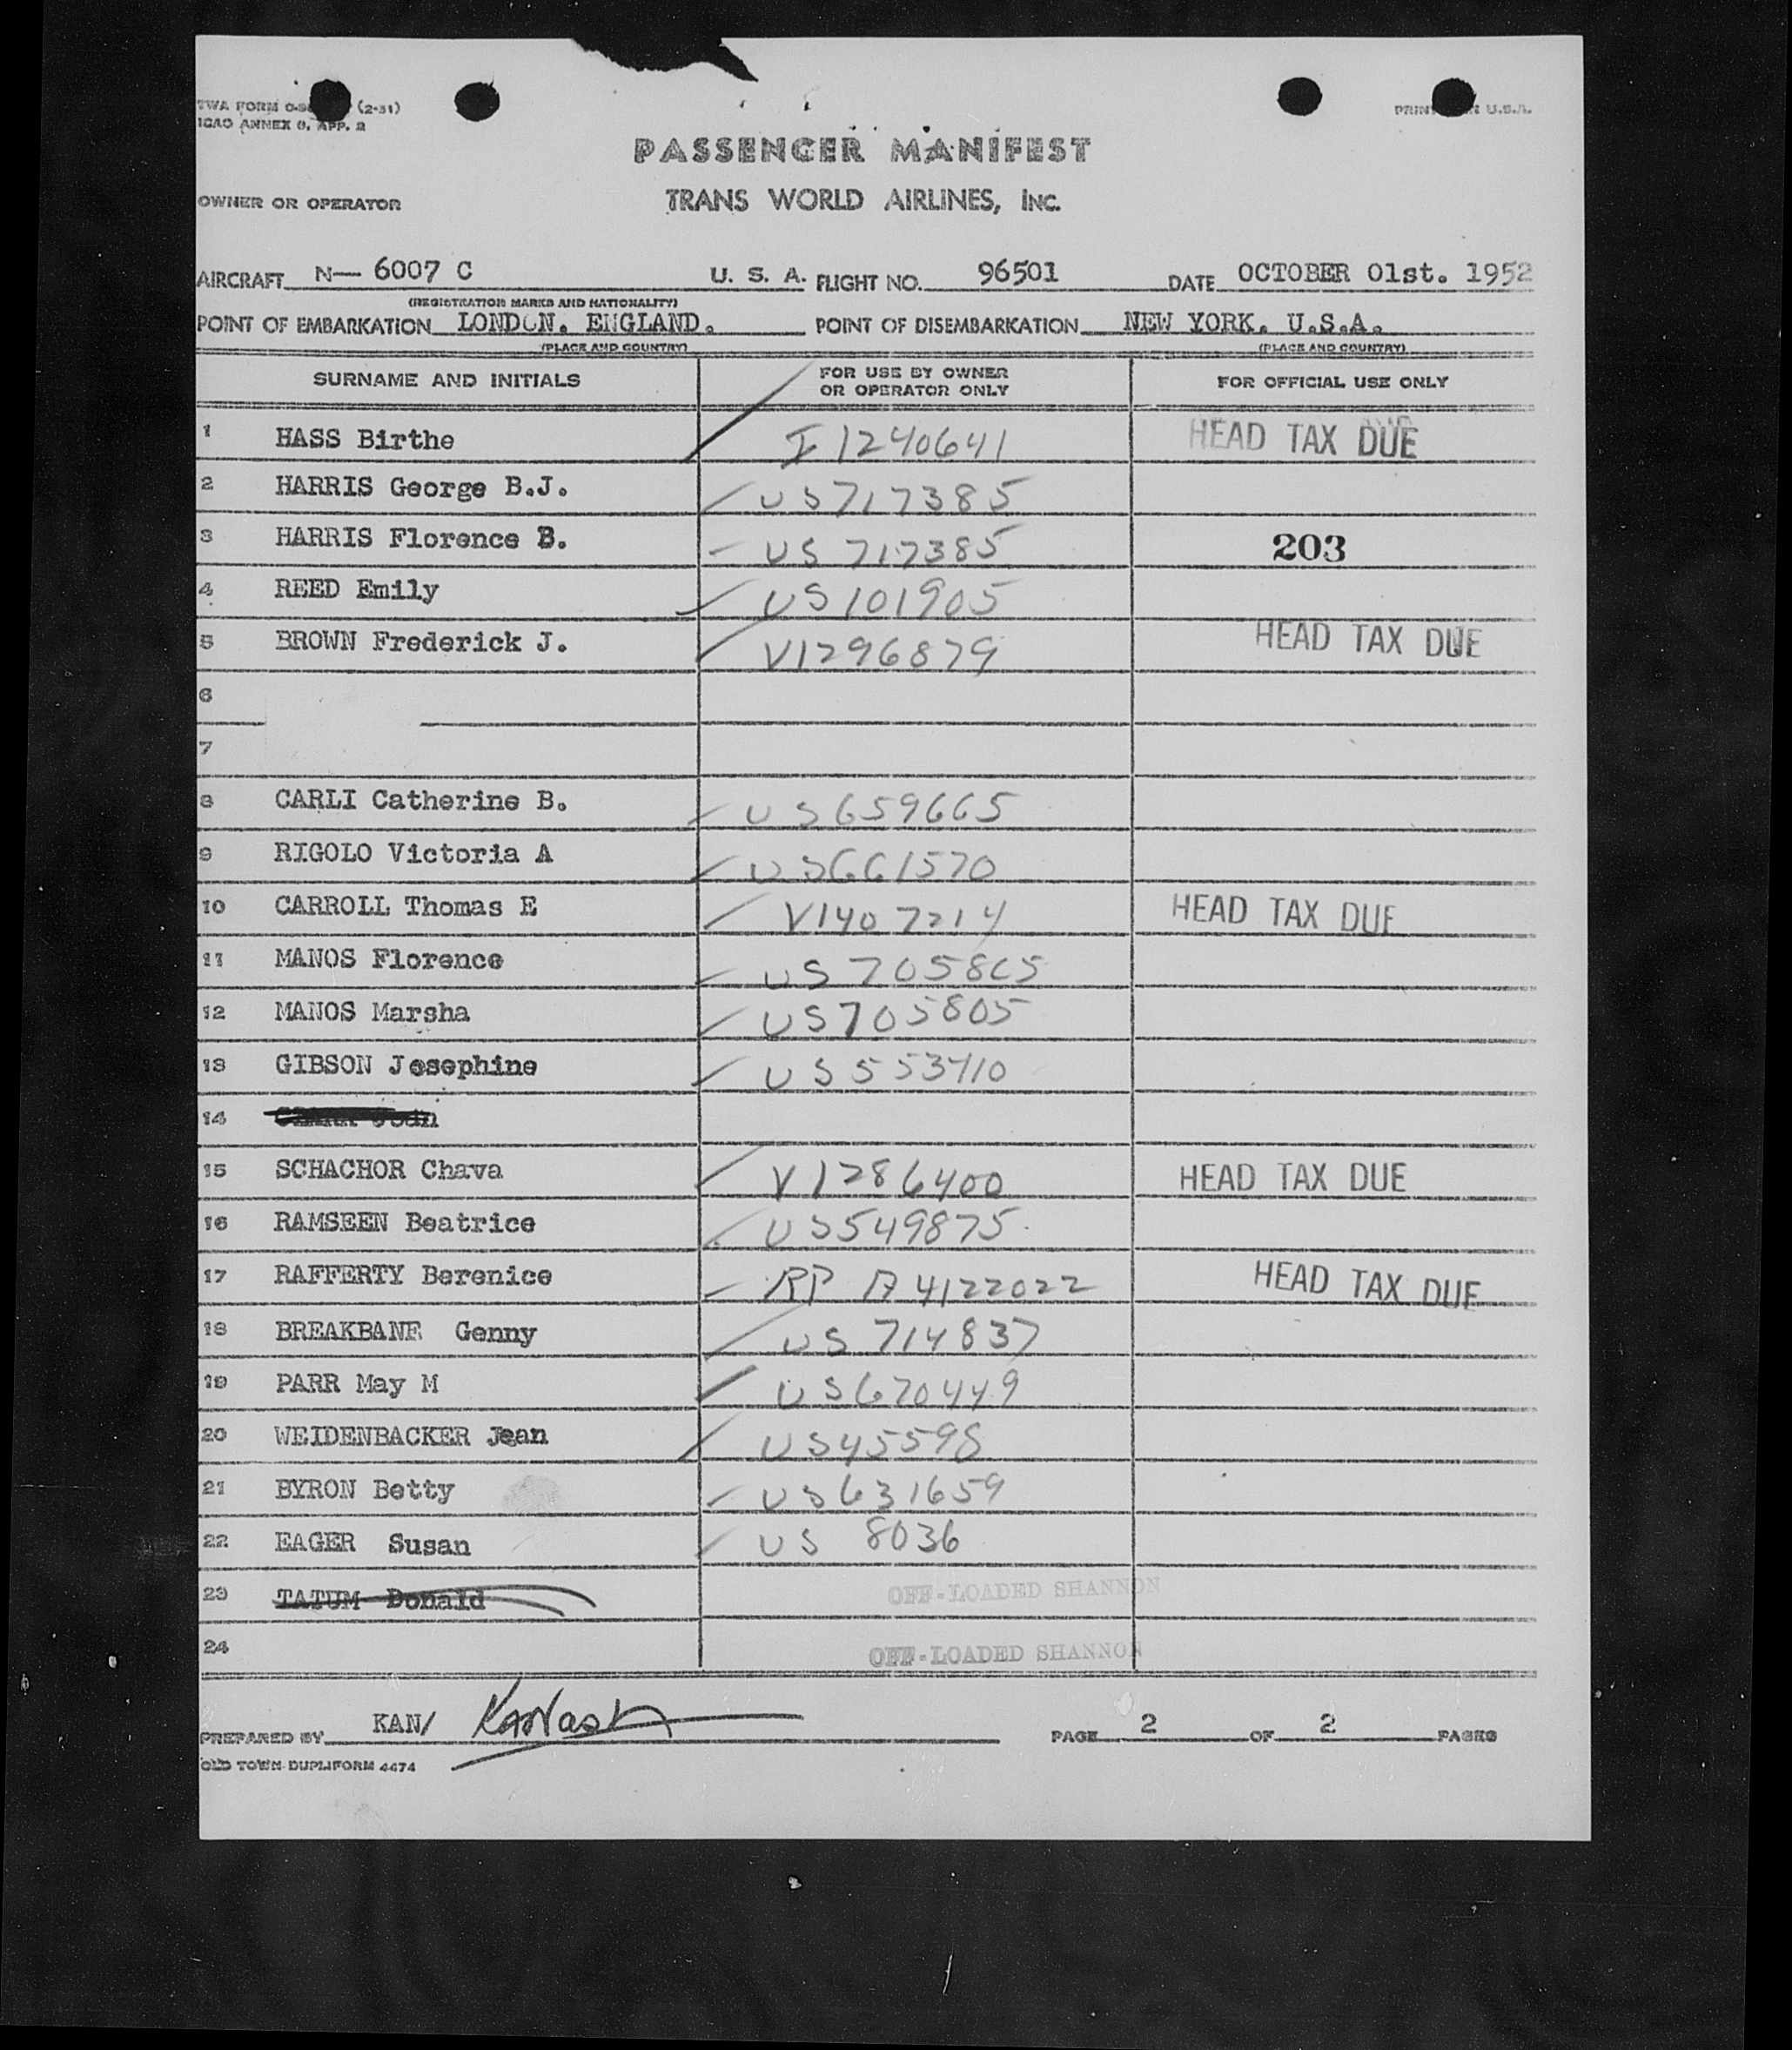 TWA FORM (2-51)
ICAO ANNEX 9, APP. 2
PRINTED IN U.S.A.
PASSENGER MANIFEST
OWNER OR OPERATOR TRANS WORLD AIRLINES, INC.
AIRCRAFT N— 6007 C U. S. A. FLIGHT NO. 96501 DATE OCTOBER 01st. 1952
(REGISTRATION MARKS AND NATIONALITY)
POINT OF EMBARKATION LONDON. ENGLAND. POINT OF DISEMBARKATION NEW YORK. U.S.A.
(PLACE AND COUNTRY) (PLACE AND COUNTRY)
SURNAME AND INITIALS FOR USE BY OWNER OR OPERATOR ONLY FOR OFFICIAL USE ONLY
1 HASS Birthe I 1240641 HEAD TAX DUE
2 HARRIS George B.J. US717385
3 HARRIS Florence B. US 717385 203
4 REED Emily US101905
5 BROWN Frederick J. V1296879 HEAD TAX DUE
6
7
8 CARLI Catherine B. US659665
9 RIGOLO Victoria A US661570
10 CARROLL Thomas E V1407214 HEAD TAX DUE
11 MANOS Florence US 705805
12 MANOS Marsha US705805
13 GIBSON Josephine US553410
14
15 SCHACHOR Chava V1286400 HEAD TAX DUE
16 RAMSEEN Beatrice US549875
17 RAFFERTY Berenice RP A4122022 HEAD TAX DUE
18 BREAKBANE Genny US 714837
19 PARR May M US670449
20 WEIDENBACKER Jean US45598
21 BYRON Betty US631659
22 EAGER Susan US 8036
23 TATUM Donald OFF-LOADED SHANNON
24 OFF-LOADED SHANNON
PREPARED BY KAN/ PAGE 2 OF 2 PAGES
OLD TOWN DUPLIFORM 4474